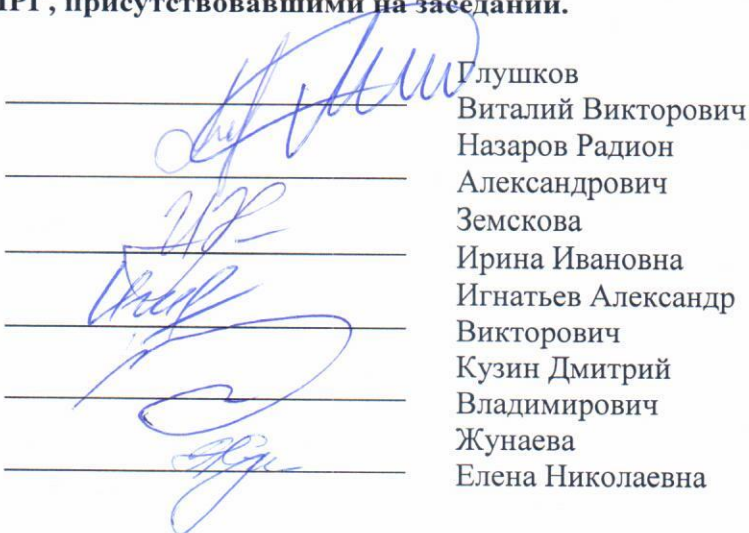 присутствовавшими на заседании.
Глушков
Виталий Викторович
Назаров Радион
Александрович
Земскова
Ирина Ивановна
Игнатьев Александр
Викторович
Кузин Дмитрий
Владимирович
Жунаева
Елена Николаевна